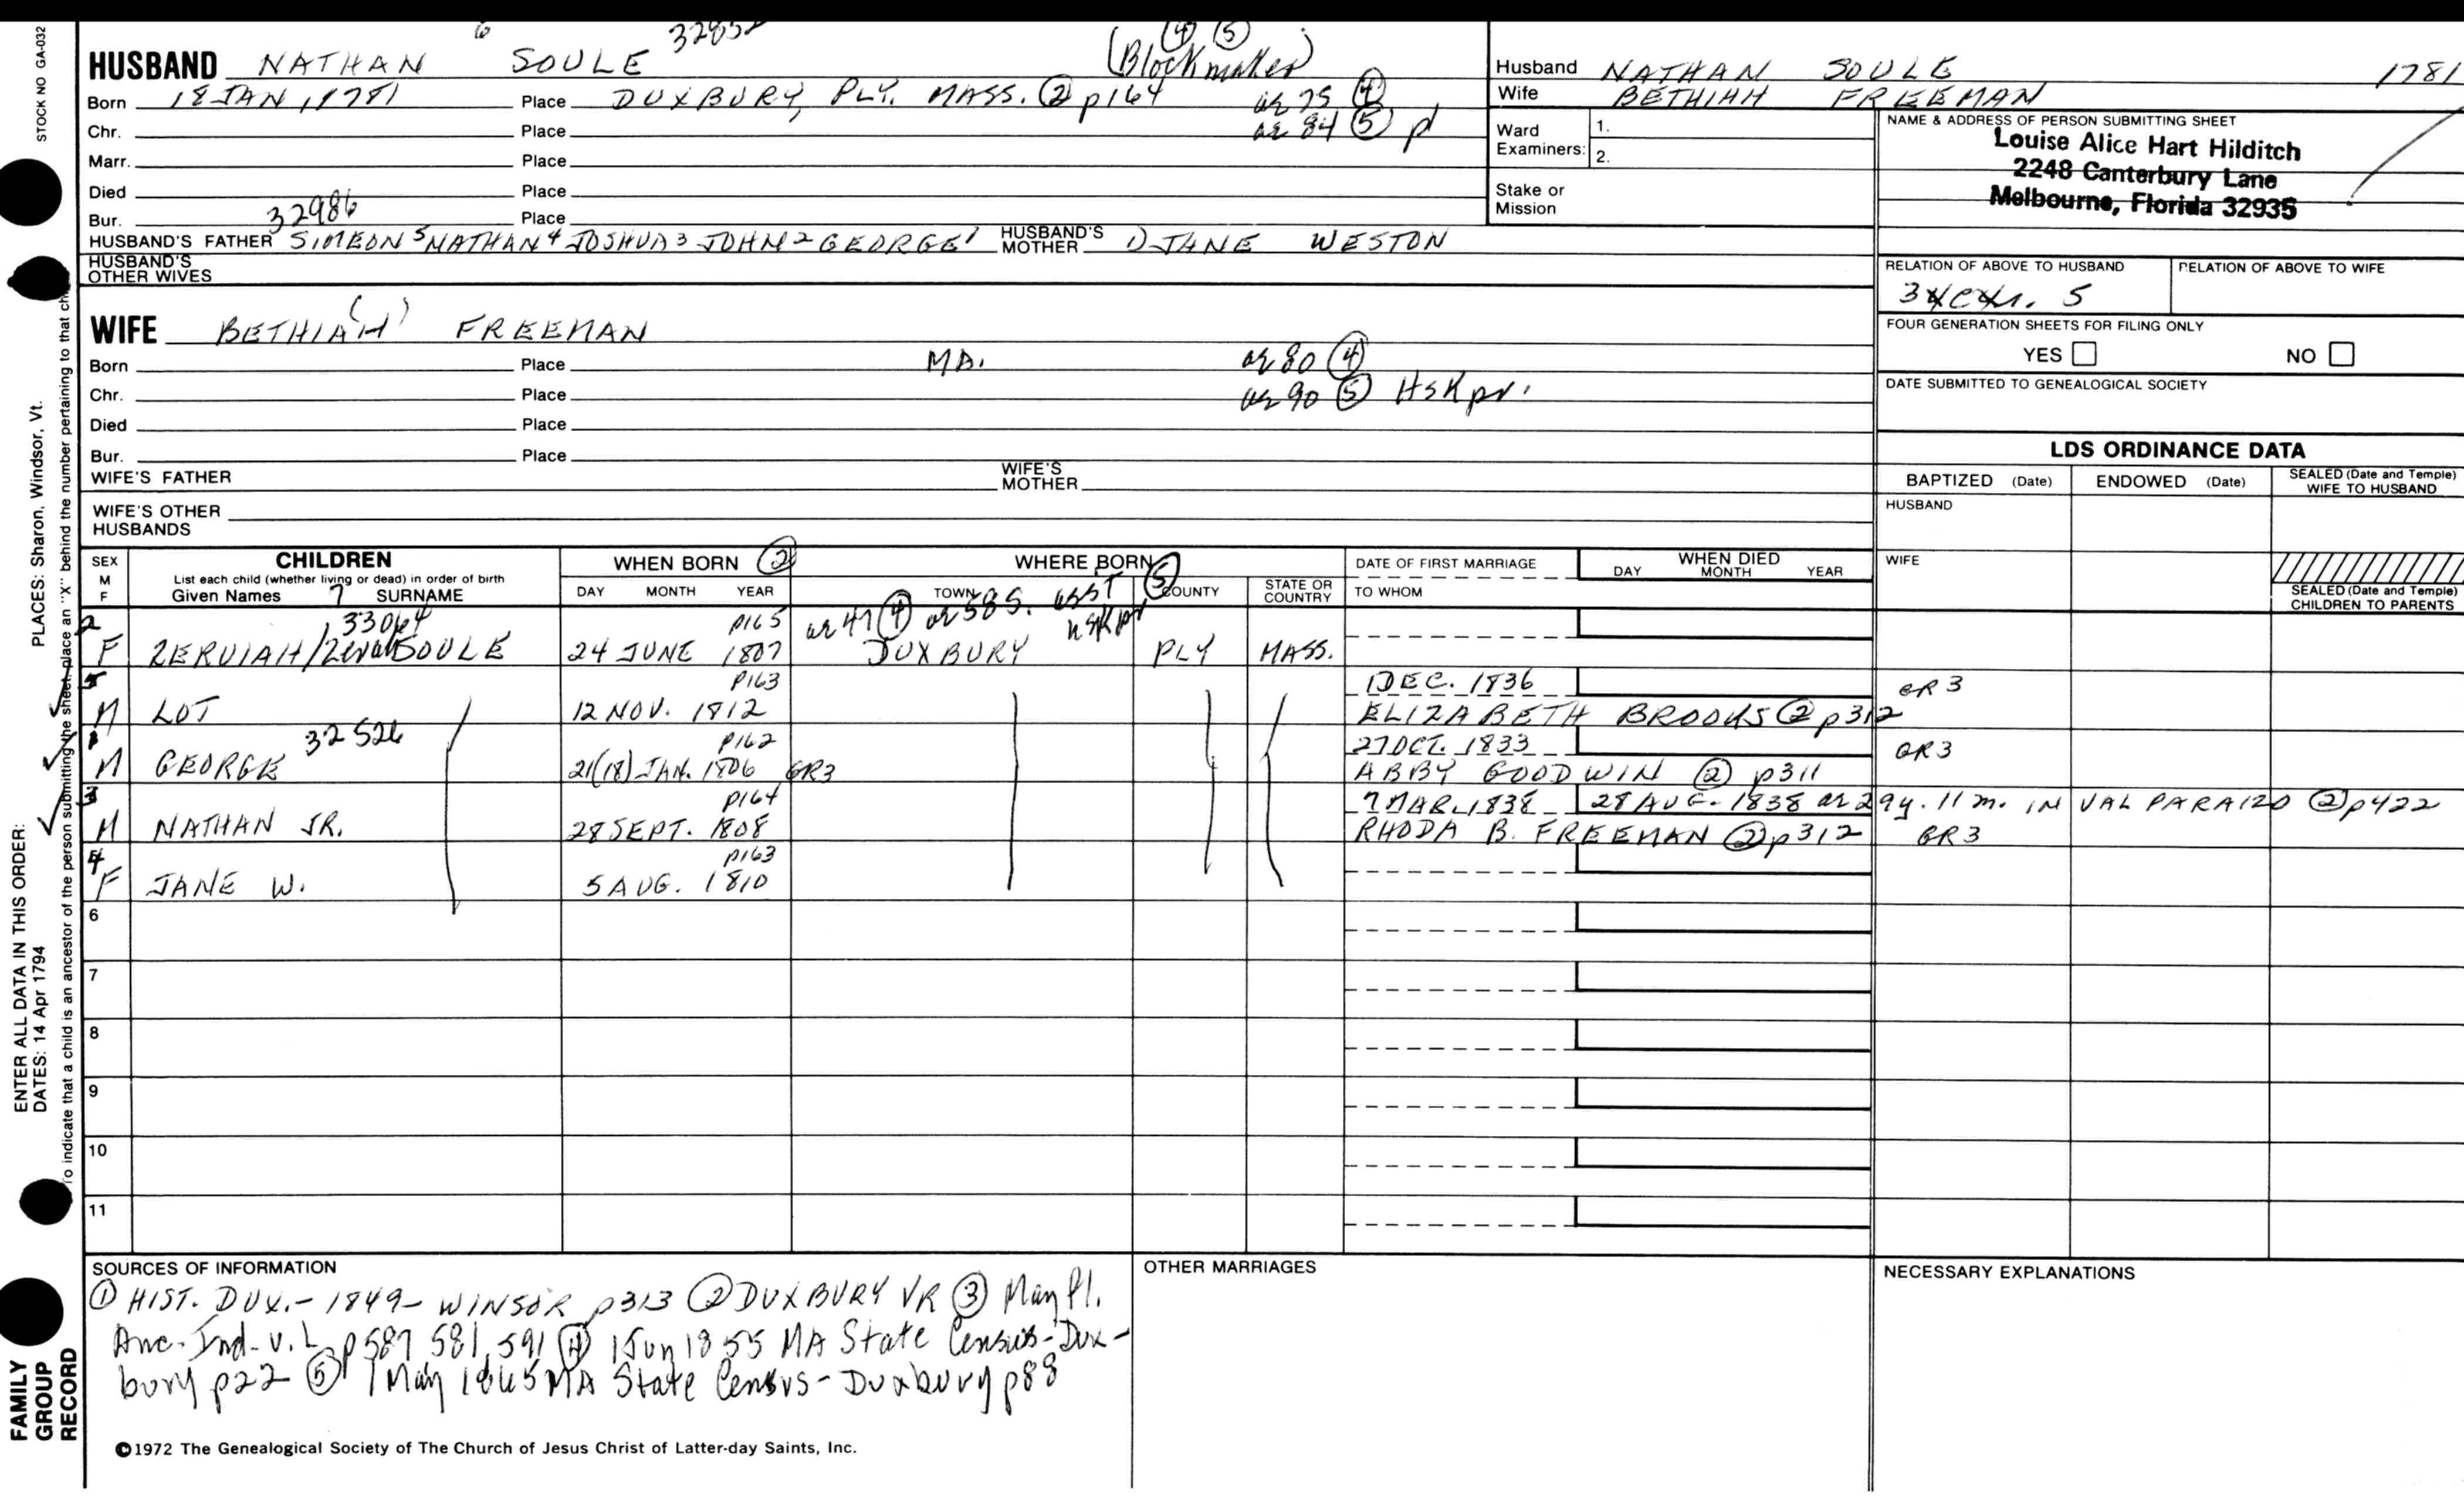 STOCK NO GA-032
HUSBAND NATHAN 6 SOULE 32852 (Blockmaker) ④ ⑤
Born 18 JAN 1781 Place DUXBURY, PLY. MASS. ② p164 ae 75 ④
Chr. Place ae 84 ⑤
Marr. Place
Died Place
Bur. 32986 Place
HUSBAND'S FATHER SIMEON 5 NATHAN 4 JOSHUA 3 JOHN 2 GEORGE 1 HUSBAND'S MOTHER 1) JANE WESTON
HUSBAND'S OTHER WIVES
WIFE BETHIA(H) FREEMAN
Born Place MA. ae 80 ④
Chr. Place ae 90 ⑤ HsKpr.
Died Place
Bur. Place
WIFE'S FATHER WIFE'S MOTHER
WIFE'S OTHER HUSBANDS
Husband NATHAN SOULE 1781
Wife BETHIAH FREEMAN
Ward Examiners: 1. 2.
Stake or Mission
NAME & ADDRESS OF PERSON SUBMITTING SHEET
Louise Alice Hart Hilditch
2248 Canterbury Lane
Melbourne, Florida 32935
RELATION OF ABOVE TO HUSBAND RELATION OF ABOVE TO WIFE
5
FOUR GENERATION SHEETS FOR FILING ONLY
YES NO
DATE SUBMITTED TO GENEALOGICAL SOCIETY
LDS ORDINANCE DATA
BAPTIZED (Date) ENDOWED (Date) SEALED (Date and Temple) WIFE TO HUSBAND
HUSBAND
WIFE
SEALED (Date and Temple) CHILDREN TO PARENTS
SEX M F CHILDREN WHEN BORN ② WHERE BORN DATE OF FIRST MARRIAGE WHEN DIED
List each child (whether living or dead) in order of birth
Given Names 7 SURNAME DAY MONTH YEAR TOWN COUNTY STATE OR COUNTRY TO WHOM DAY MONTH YEAR
2 33064 p165 ae 47 ④ ae 58 S. asst HsKpr ⑤
F ZERUIAH/Zeruah SOULE 24 JUNE 1807 DUXBURY PLY MASS.
5 p163 1 DEC. 1836 GR3
M LOT 12 NOV. 1812 ELIZABETH BROOKS ② p312
1 32526 p162 27 OCT. 1833 GR3
M GEORGE 21(18) JAN. 1806 GR3 ABBY GOODWIN ② p311
3 p164 7 MAR. 1838 28 AUG. 1838 ae 29y. 11m. IN VALPARAIZO ② p422
M NATHAN JR. 28 SEPT. 1808 RHODA B. FREEMAN ② p312 GR3
4 p163
F JANE W. 5 AUG. 1810
6
7
8
9
10
11
SOURCES OF INFORMATION OTHER MARRIAGES NECESSARY EXPLANATIONS
① HIST. DUX.- 1849- WINSOR p313 ② DUXBURY VR ③ May Fl.
Anc. Ind- v. 1 p587 581, 591 ④ 1 Jun 1855 MA State Census- Dux-
bury p22 ⑤ 1 May 1865 MA State Census- Duxbury p88
©1972 The Genealogical Society of The Church of Jesus Christ of Latter-day Saints, Inc.
PLACES: Sharon, Windsor, Vt.
ENTER ALL DATA IN THIS ORDER:
DATES: 14 Apr 1794
To indicate that a child is an ancestor of the person submitting the sheet, place an "X" behind the number pertaining to that
FAMILY
GROUP
RECORD